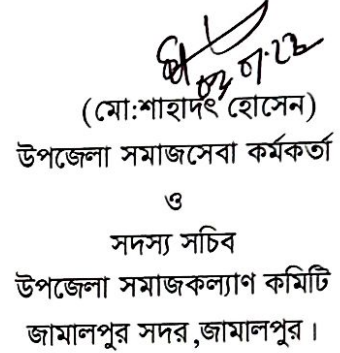 ০৩.০৭.২৩
(মো:শাহাদৎ হোসেন)
উপজেলা সমাজসেবা কর্মকর্তা
ও
সদস্য সচিব
উপজেলা সমাজকল্যাণ কমিটি
জামালপুর সদর,জামালপুর।